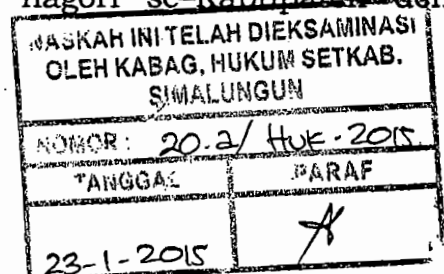 nagori se-Kabupaten
NASKAH INI TELAH DIEKSAMINASI
OLEH KABAG, HUKUM SETKAB.
SIMALUNGUN
NOMOR : 20.a/ HUK - 2015
TANGGAL PARAF
23-1-2015